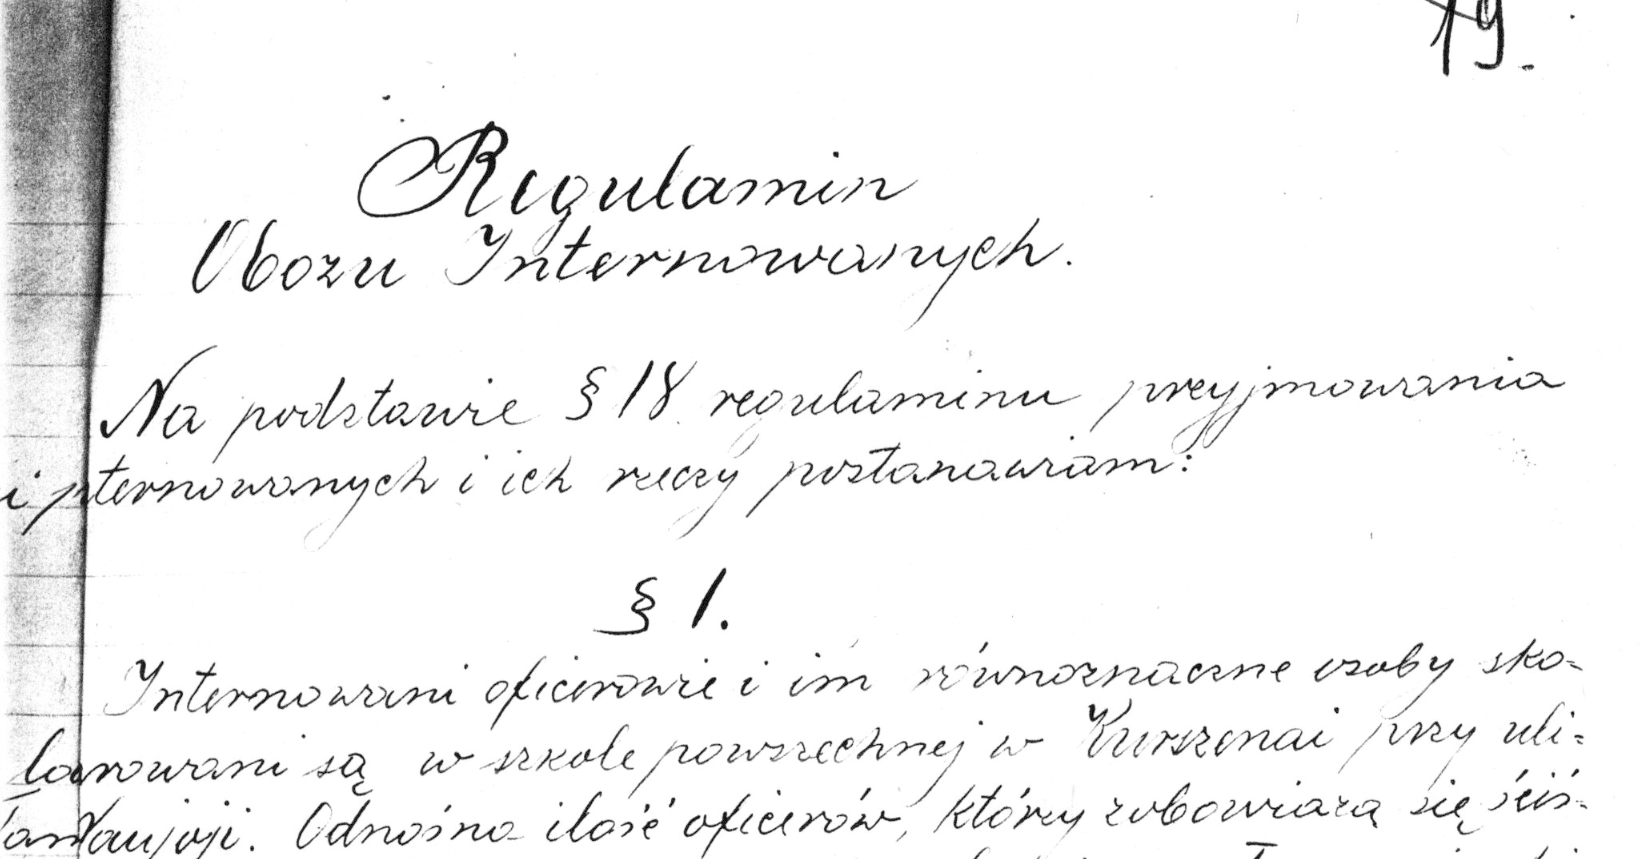 19.
Regulamin
Obozu Internowanych.
Na podstawie § 18 regulaminu przyjmowania
internowanych i ich rzeczy postanawiam:
§ 1.
Internowani oficerowie i im równoznaczne osoby sko-
szarowani są w szkole powszechnej w Kurszenai przy uli-
Odnośna ilość oficerów, którzy zobowiążą się ściś-